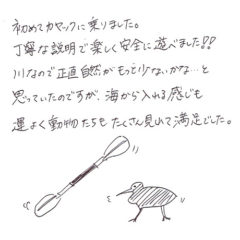 初めてカヤックに乗りました。
丁寧な説明で楽しく安全に遊べました!!
川なので正直自然がもっと少ないかな…と
思っていたのですが、海から入れる感じも
運よく動物たちもたくさん見れて満足でした。